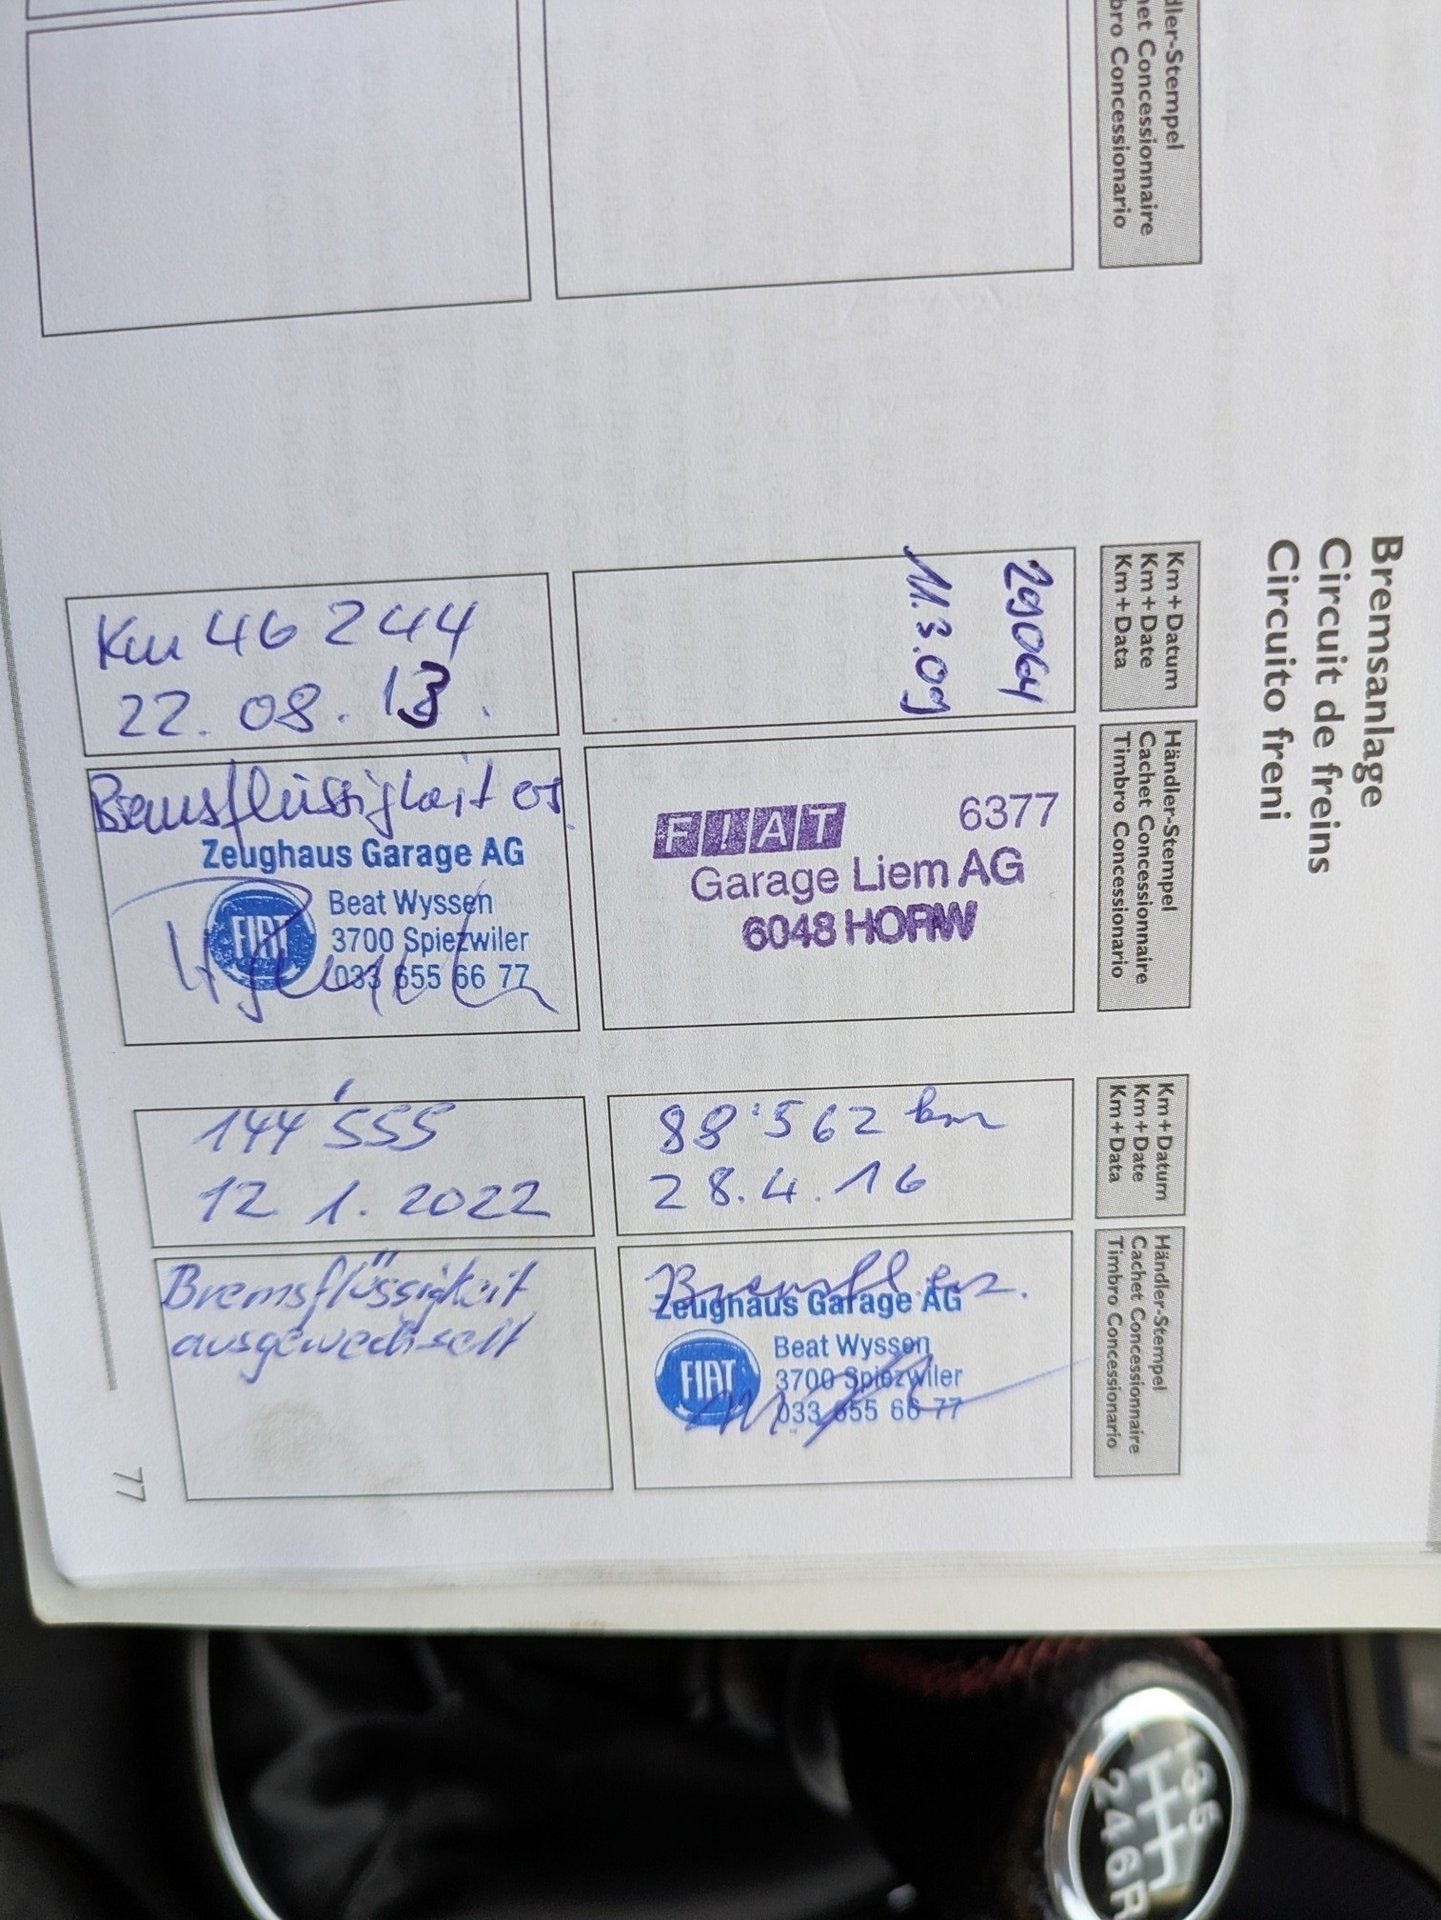 dler-Stempel
het Concessionnaire
bro Concessionario
Bremsanlage
Circuit de freins
Circuito freni
Km+Datum
Km+Date
Km+Data
Händler-Stempel
Cachet Concessionnaire
Timbro Concessionario
29064
11.3.09
FIAT 6377
Garage Liem AG
6048 HORW
Km 46 244
22.08.13.
Bremsflüssigkeit
Zeughaus Garage AG
FIAT
Beat Wyssen
3700 Spiezwiler
033 655 66 77
Km+Datum
Km+Date
Km+Data
Händler-Stempel
Cachet Concessionnaire
Timbro Concessionario
88'562 km
28.4.16
Zeughaus Garage AG
FIAT
Beat Wyssen
3700 Spiezwiler
033 655 66 77
144'555
12 1. 2022
Bremsflüssigkeit
ausgewechselt
77
1 3 5
2 4 6 R